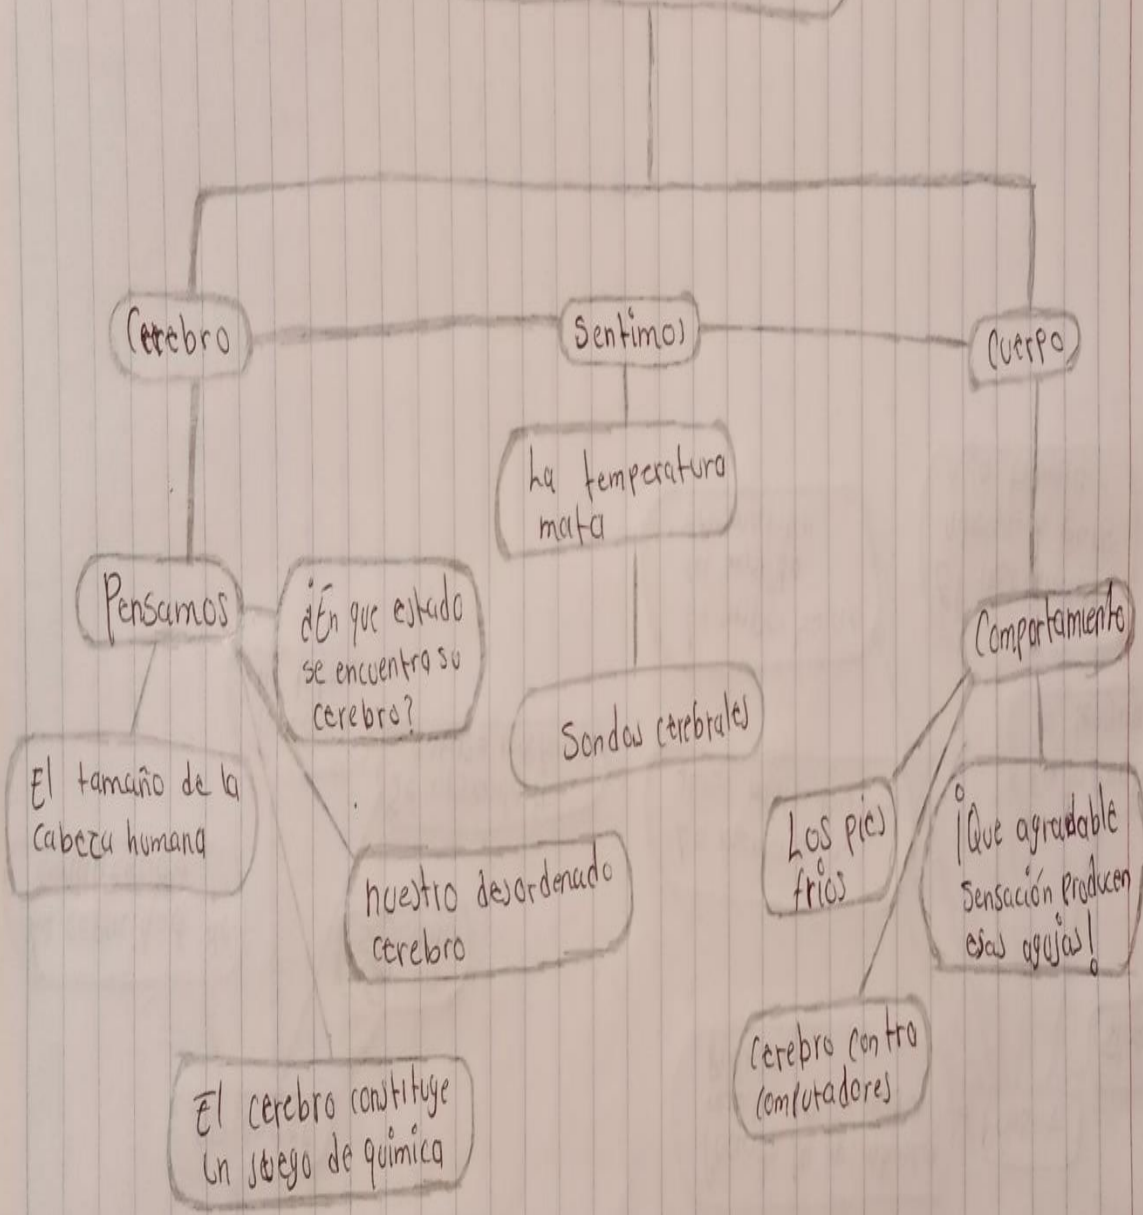 Cerebro
Sentimos
Cuerpo
La temperatura
mata
Pensamos
¿En que estado
se encuentra su
cerebro?
Comportamiento
Sondas cerebrales
El tamaño de la
cabeza humana
Los pies
frios
¡Que agradable
sensación producen
esas agujas!
nuestro desordenado
cerebro
cerebro contra
computadores
El cerebro constituye
un juego de química